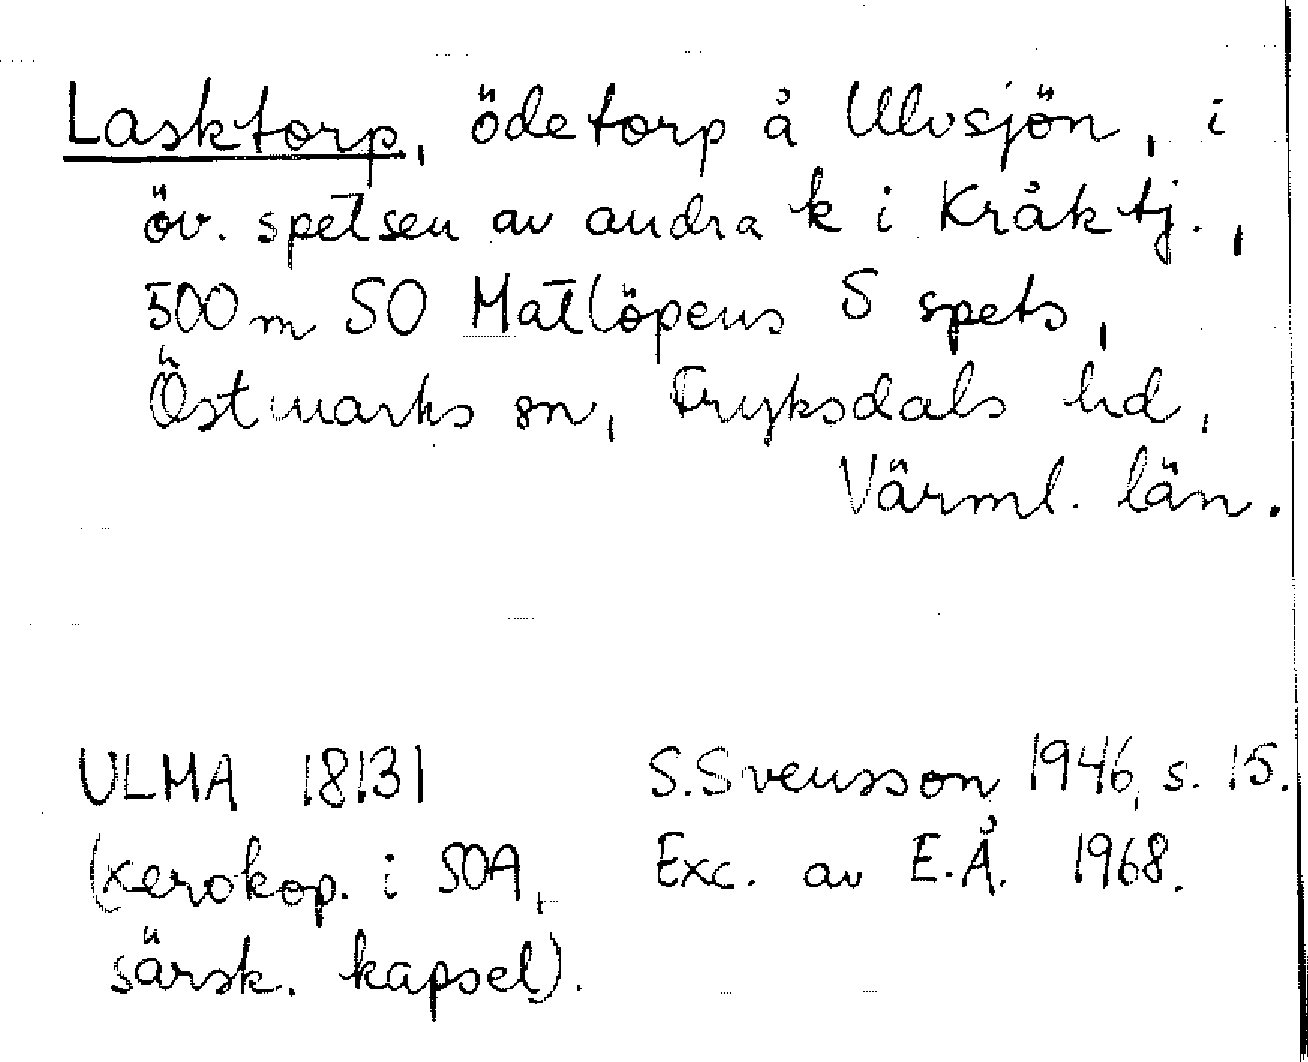 Lasktorp, ödetorp å Ulvsjön, i
öv. spetsen av andra k i Kråktj.,
500 m SO Matlöpens S spets,
Östmarks sn, Fryksdals hd,
Värml. län.
ULMA 18131 S. Svensson 1946, s. 15.
(xerokop. i SOA, Exc. av E.Å. 1968.
särsk. kapsel).